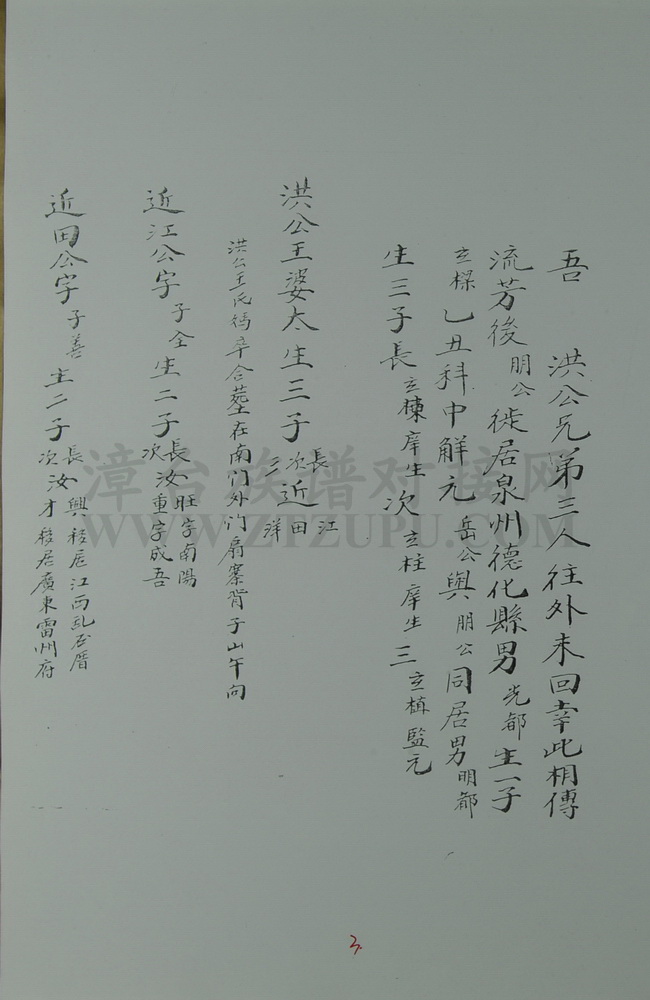 吾　洪公兄弟三人往外未回幸此相傳
流芳後朋公徙居泉州德化縣男光都生一子
立樑乙丑科中解元岳公與朋公同居男明都
生三子長立棟庠生次立柱庠生三立楨監元
洪公王婆大生三子長次三近江田洋
洪公王氏媽卒合塟在南门外门扇寨背子山午向
近江公字子全生二子長汝旺字南陽次汝重字成吾
近田公字子善生二子長汝興移居江西乱石厝次汝才移居廣東雷州府
3
漳台族谱对接网
WWW.ZTZUPU.COM